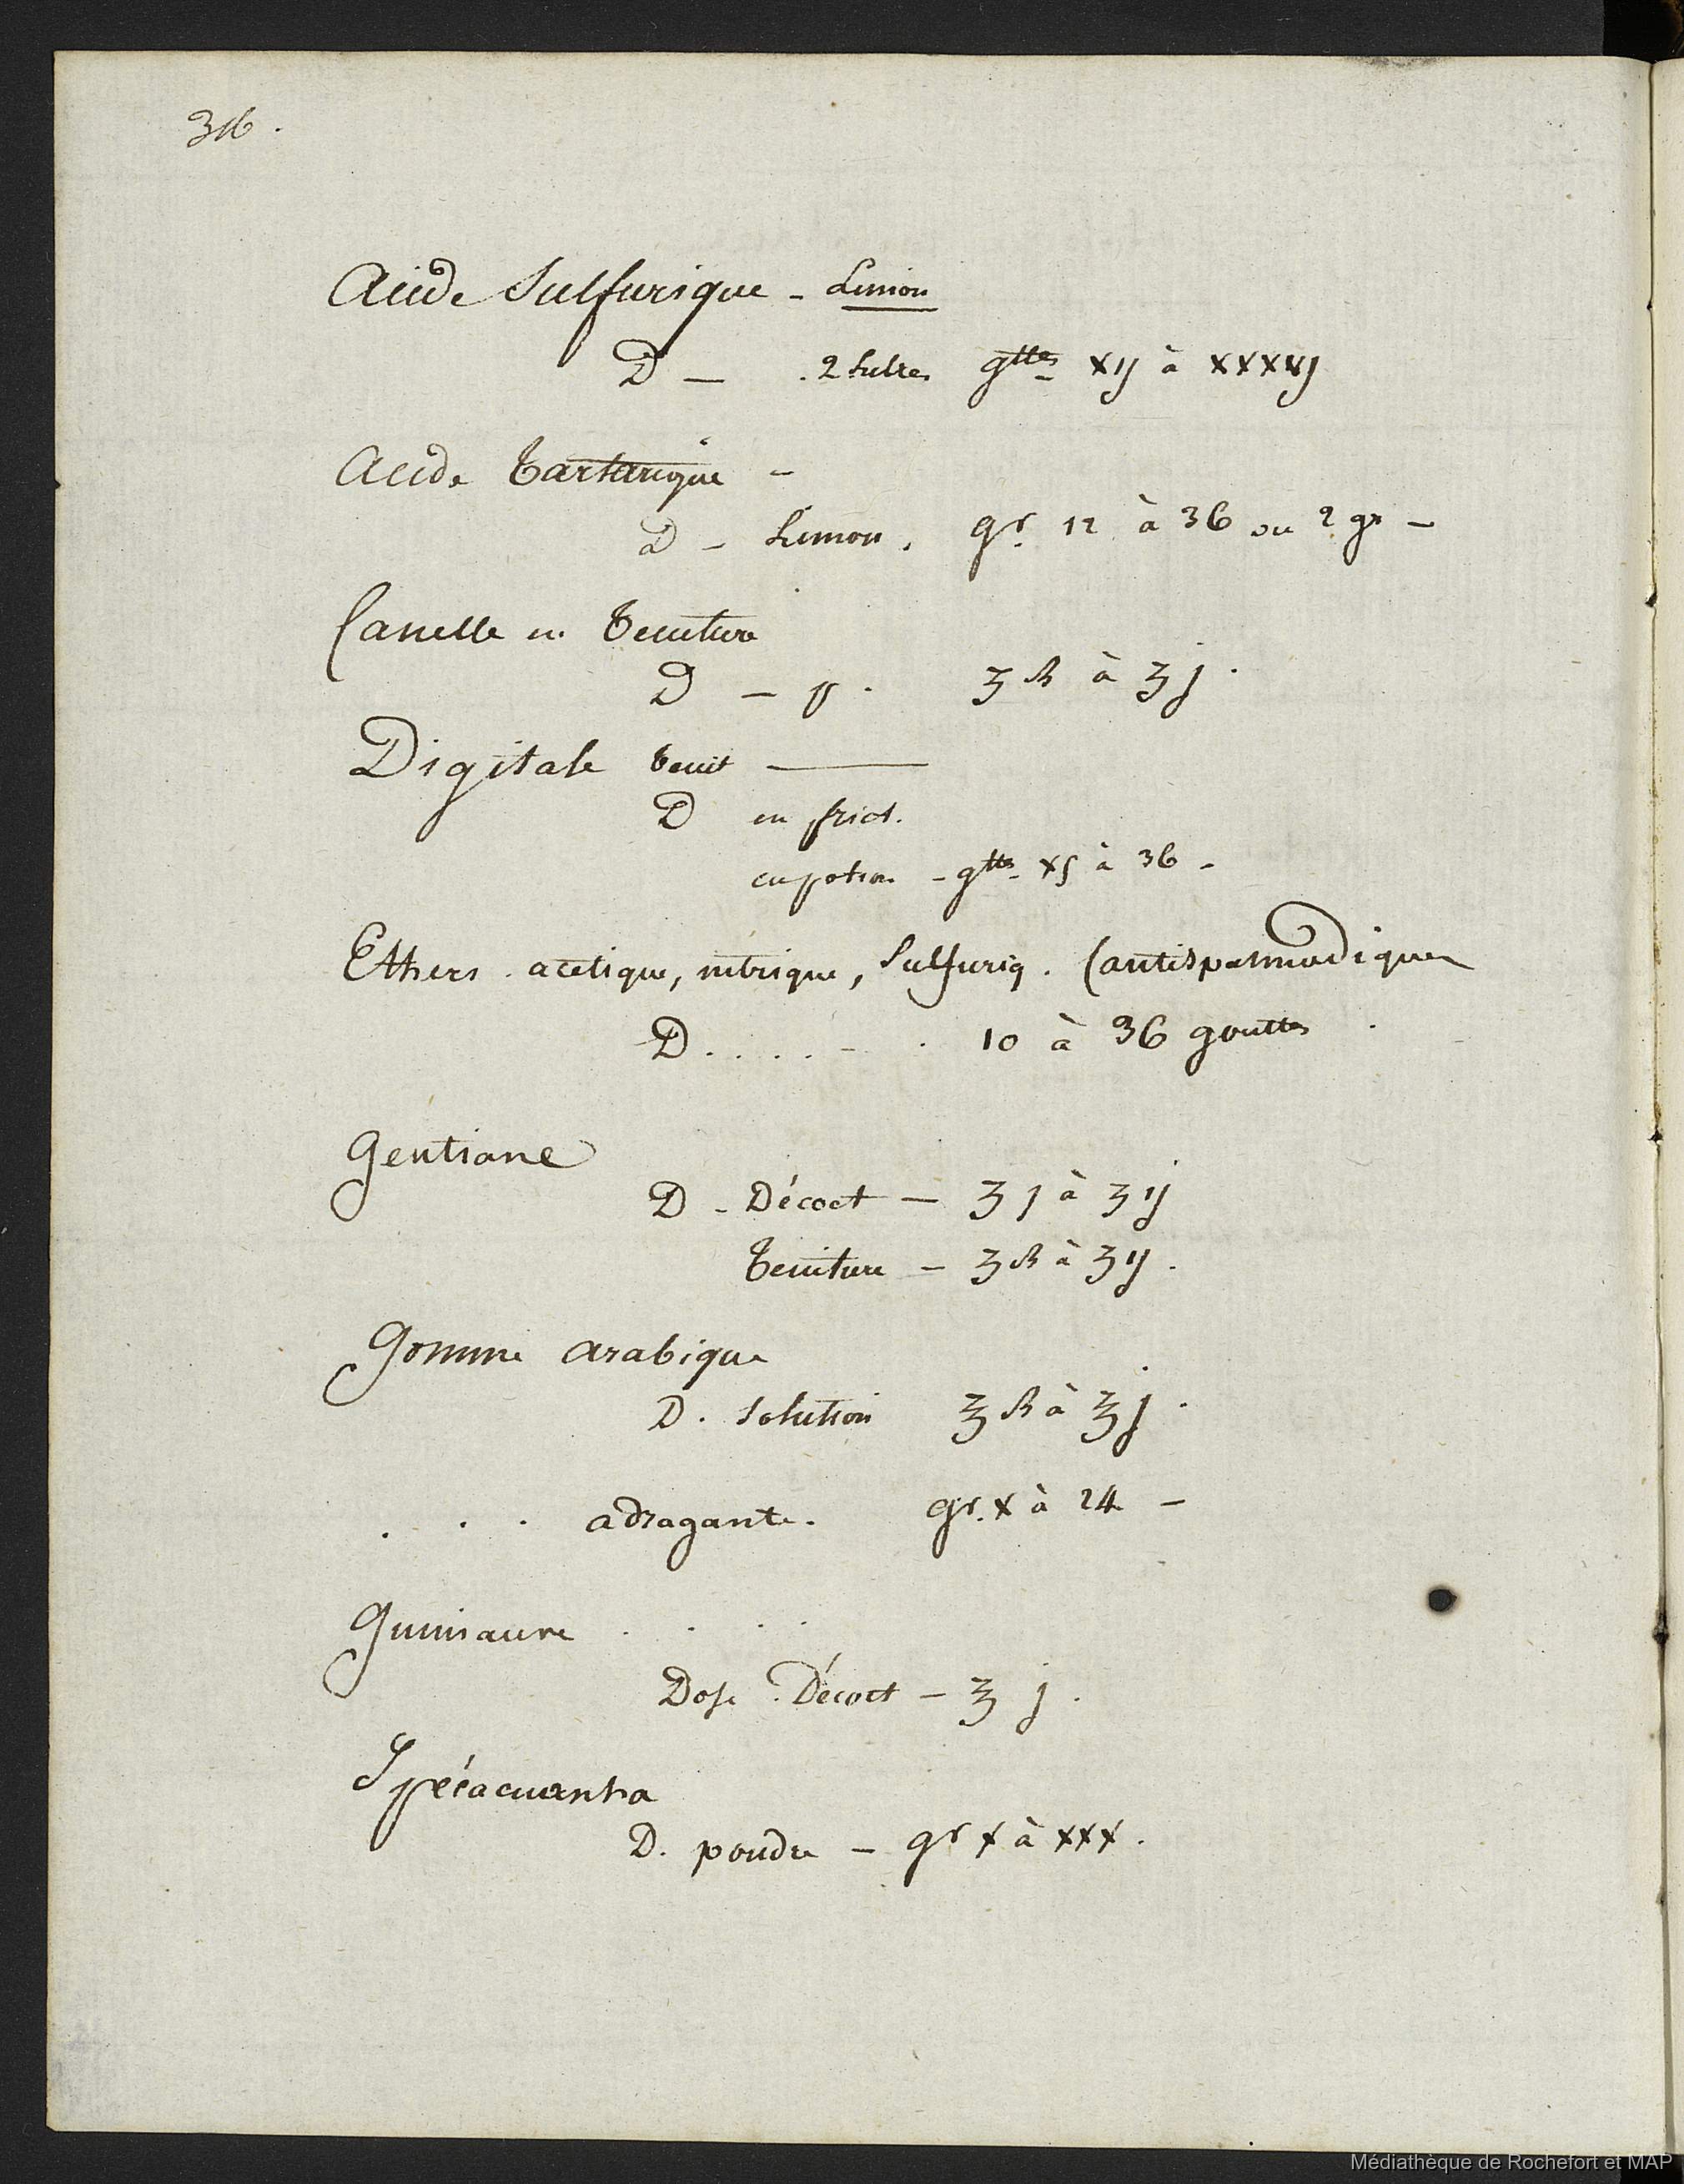 316.
Acide Sulfurique - Limon
D - 2 Litres gttes xij à xxxvj
Acide Tartarique -
D - Limon. gr. 12 à 36 ou 2 gr -
Canelle en Teinture
D - p. ʒ ß à ʒ j.
Digitale teint
D en frict.
en potion - gttes xv à 36 -
Ethers. acetique, nitrique, Sulfuriq. (antispasmodiques
D . . . . - . 10 à 36 gouttes
Gentiane
D - Décoct - ʒ j à ʒ ij
Teinture - ʒ ß à ʒ ij.
Gomme arabique
D. solution ℥ ß à ℥ j.
. . . adragante. gr. x à 24 -
Guimauve . . . .
Dose. Décoct - ℥ j.
Ipécacuanha
D. poudre - gr x à xxx.
Médiathèque de Rochefort et MAP